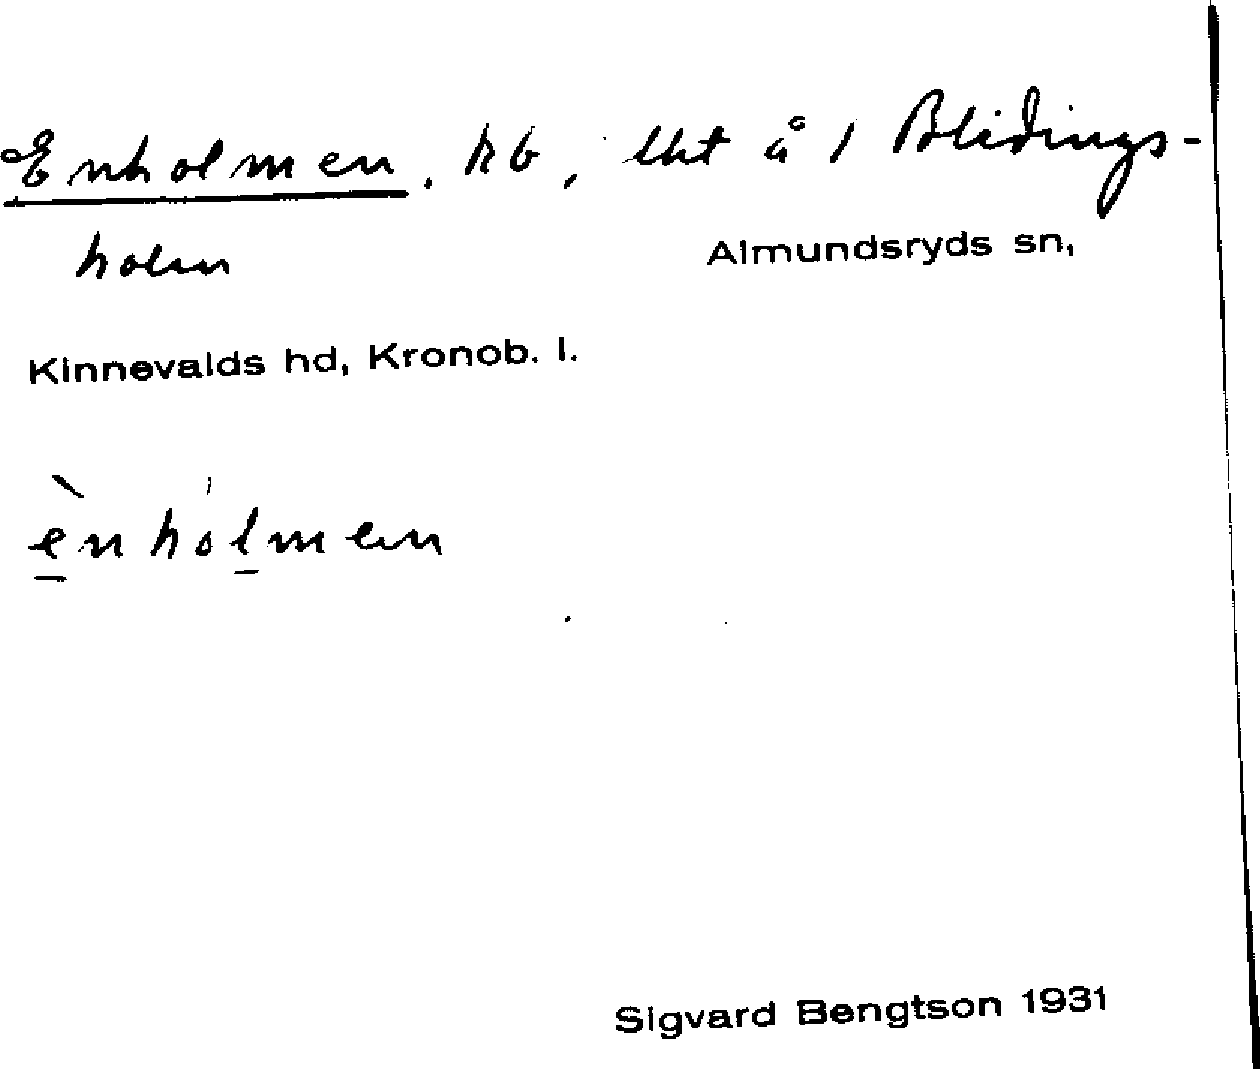 Enholmen, hb, lht å 1 Blidings-
holm
Almundsryds sn,
Kinnevalds hd, Kronob. l.
ènhólmen
Sigvard Bengtson 1931